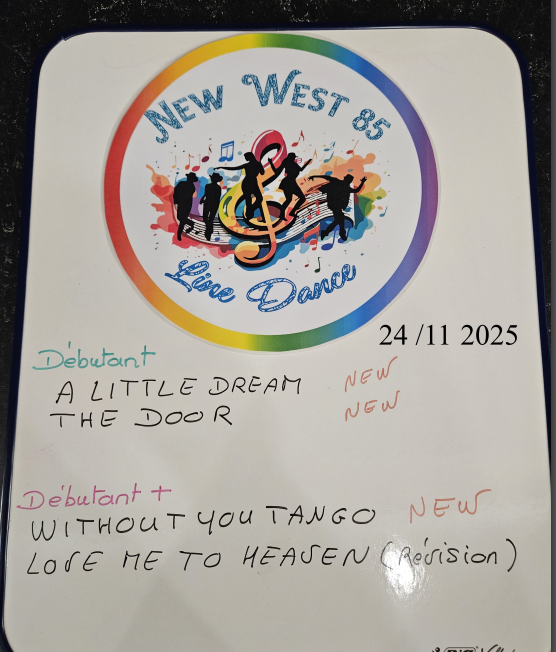 NEW WEST 85
Line Dance
24 /11 2025
Débutant
A LITTLE DREAM NEW
THE DOOR NEW
Débutant +
WITHOUT YOU TANGO NEW
LOVE ME TO HEAVEN (Révision)